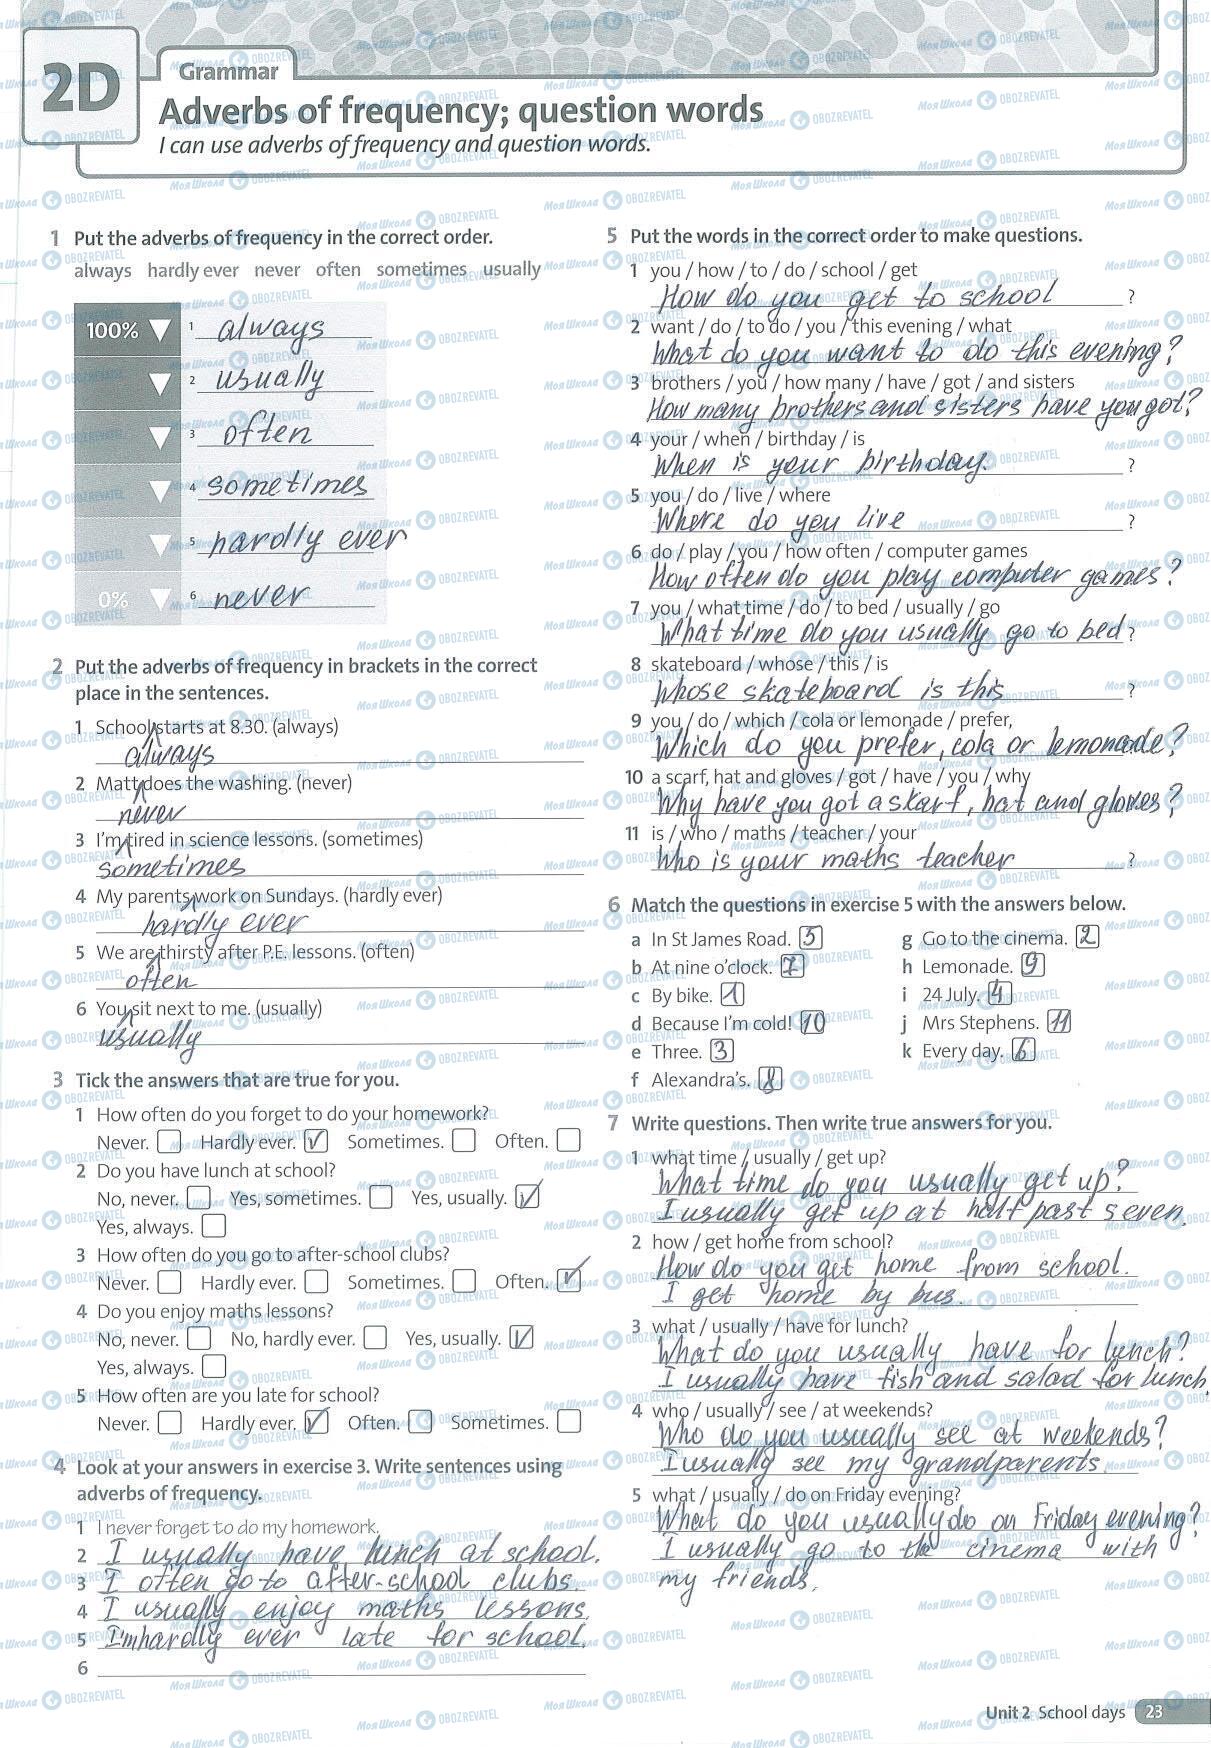 2D
Grammar
Adverbs of frequency; question words
I can use adverbs of frequency and question words.
1 Put the adverbs of frequency in the correct order.
always hardly ever never often sometimes usually
100% 1 always
2 usually
3 often
4 sometimes
5 hardly ever
0% 6 never
2 Put the adverbs of frequency in brackets in the correct
place in the sentences.
1 School starts at 8.30. (always)
always
2 Matt does the washing. (never)
never
3 I'm tired in science lessons. (sometimes)
sometimes
4 My parents work on Sundays. (hardly ever)
hardly ever
5 We are thirsty after P.E. lessons. (often)
often
6 You sit next to me. (usually)
usually
3 Tick the answers that are true for you.
1 How often do you forget to do your homework?
Never. Hardly ever. ✓ Sometimes. Often.
2 Do you have lunch at school?
No, never. Yes, sometimes. Yes, usually. ✓
Yes, always.
3 How often do you go to after-school clubs?
Never. Hardly ever. Sometimes. Often. ✓
4 Do you enjoy maths lessons?
No, never. No, hardly ever. Yes, usually. ✓
Yes, always.
5 How often are you late for school?
Never. Hardly ever. ✓ Often. Sometimes.
4 Look at your answers in exercise 3. Write sentences using
adverbs of frequency.
1 I never forget to do my homework.
2 I usually have lunch at school.
3 I often go to after-school clubs
4 I usually enjoy maths lessons.
5 I'm hardly ever late for school.
6
5 Put the words in the correct order to make questions.
1 you / how / to / do / school / get
How do you get to school ?
2 want / do / to do / you / this evening / what
What do you want to do this evening?
3 brothers / you / how many / have / got / and sisters
How many brothers and sisters have you got?
4 your / when / birthday / is
When is your birthday. ?
5 you / do / live / where
Where do you live ?
6 do / play / you / how often / computer games
How often do you play computer games?
7 you / what time / do / to bed / usually / go
What time do you usually go to bed ?
8 skateboard / whose / this / is
Whose skateboard is this ?
9 you / do / which / cola or lemonade / prefer,
Which do you prefer, cola or lemonade?
10 a scarf, hat and gloves / got / have / you / why
Why have you got a skarf, hat and gloves?
11 is / who / maths / teacher / your
Who is your maths teacher ?
6 Match the questions in exercise 5 with the answers below.
a In St James Road. 5 g Go to the cinema. 2
b At nine o'clock. 7 h Lemonade. 9
c By bike. 1 i 24 July. 4
d Because I'm cold! 10 j Mrs Stephens. 11
e Three. 3 k Every day. 6
f Alexandra's. 8
7 Write questions. Then write true answers for you.
1 what time / usually / get up?
What time do you usually get up?
I usually get up at half past seven.
2 how / get home from school?
How do you get home from school.
I get home by bus.
3 what / usually / have for lunch?
What do you usually have for lunch?
I usually have fish and salad for lunch.
4 who / usually / see / at weekends?
Who do you usually see at weekends?
I usually see my grandparents.
5 what / usually / do on Friday evening?
What do you usually do on Friday evening?
I usually go to the cinema with
my friends.
Unit 2 School days 23
Моя Школа OBOZREVATEL